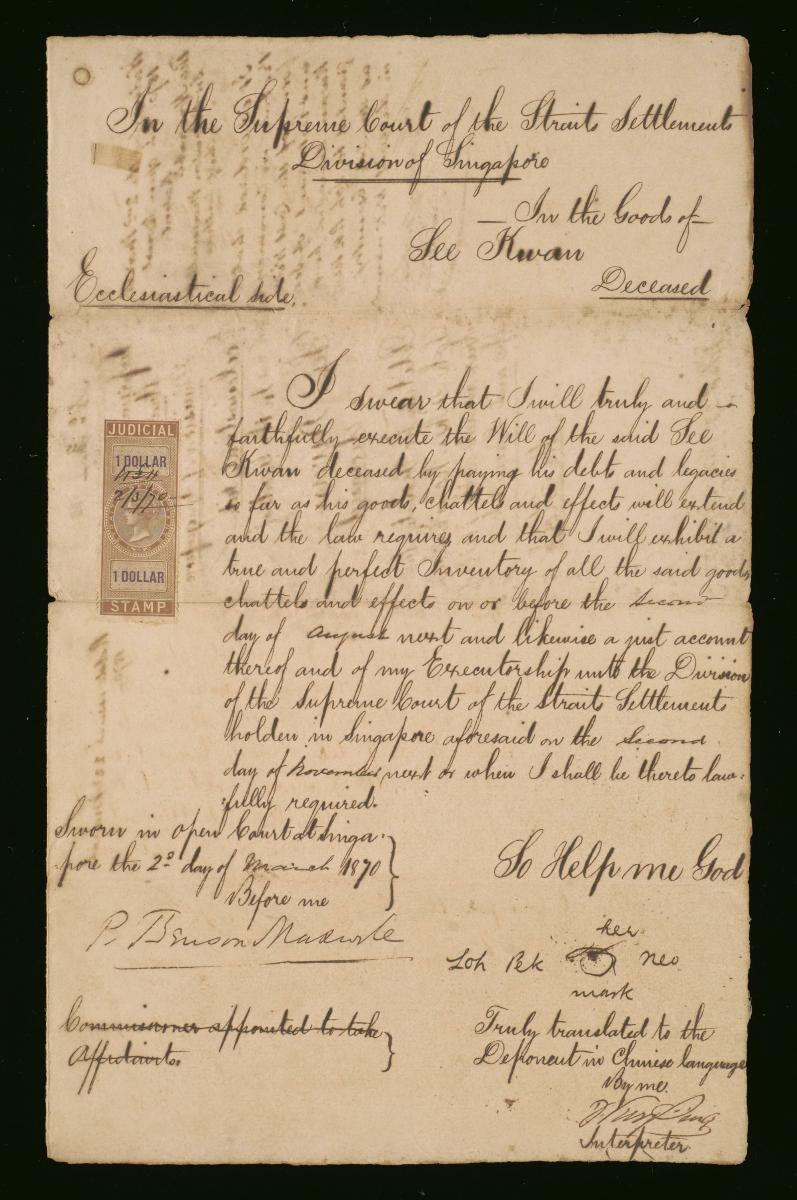 In the Supreme Court of the Straits Settlements
Division of Singapore
— In the Goods of —
See Kwan
Deceased
Ecclesiastical side.
I swear that I will truly and —
faithfully execute the Will of the said See
Kwan deceased by paying his debts and legacies
so far as his goods, chattels and effects will extend
and the law requires and that I will exhibit a
true and perfect Inventory of all the said goods
chattels and effects on or before the second
day of August next and likewise a just account
thereof and of my Executorship unto the Division
of the Supreme Court of the Straits Settlements
holden in Singapore aforesaid on the second
day of November next or when I shall be thereto law:
:fully required.
JUDICIAL
1 DOLLAR
2/3/70
1 DOLLAR
STAMP
Sworn in open Court at Singa:
pore the 2d day of March 1870
Before me
P. Benson Maxwell
Commissioner appointed to take
Affidavits
So Help me God
her
Loh Pek Neo
mark
Truly translated to the
Deponent in Chinese language
By me.
Interpreter.